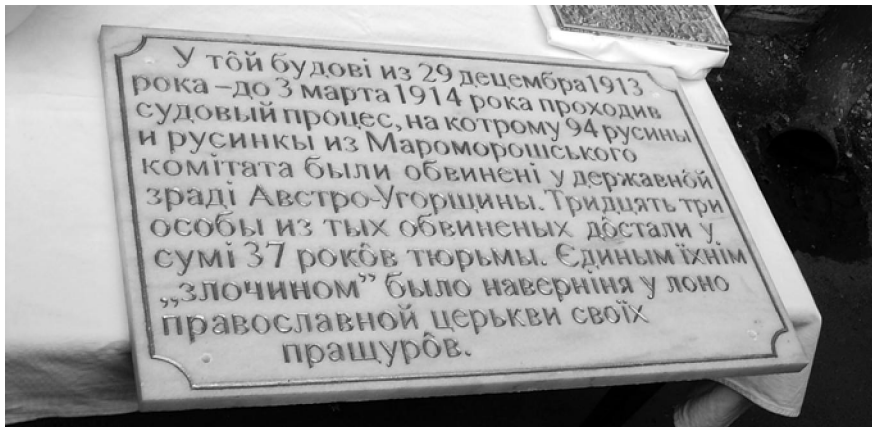 У тôй будові из 29 децембра 1913
рока – до 3 марта 1914 рока проходив
судовый процес, на котрому 94 русины
и русинкы из Мароморошського
комітата были обвинені у державнôй
зраді Австро-Угорщины. Тридцять три
особы из тых обвиненых дôстали у
сумі 37 рокôв тюрьмы. Єдиным їхнім
„злочином” было наверніня у лоно
православной церькви своїх
пращурôв.